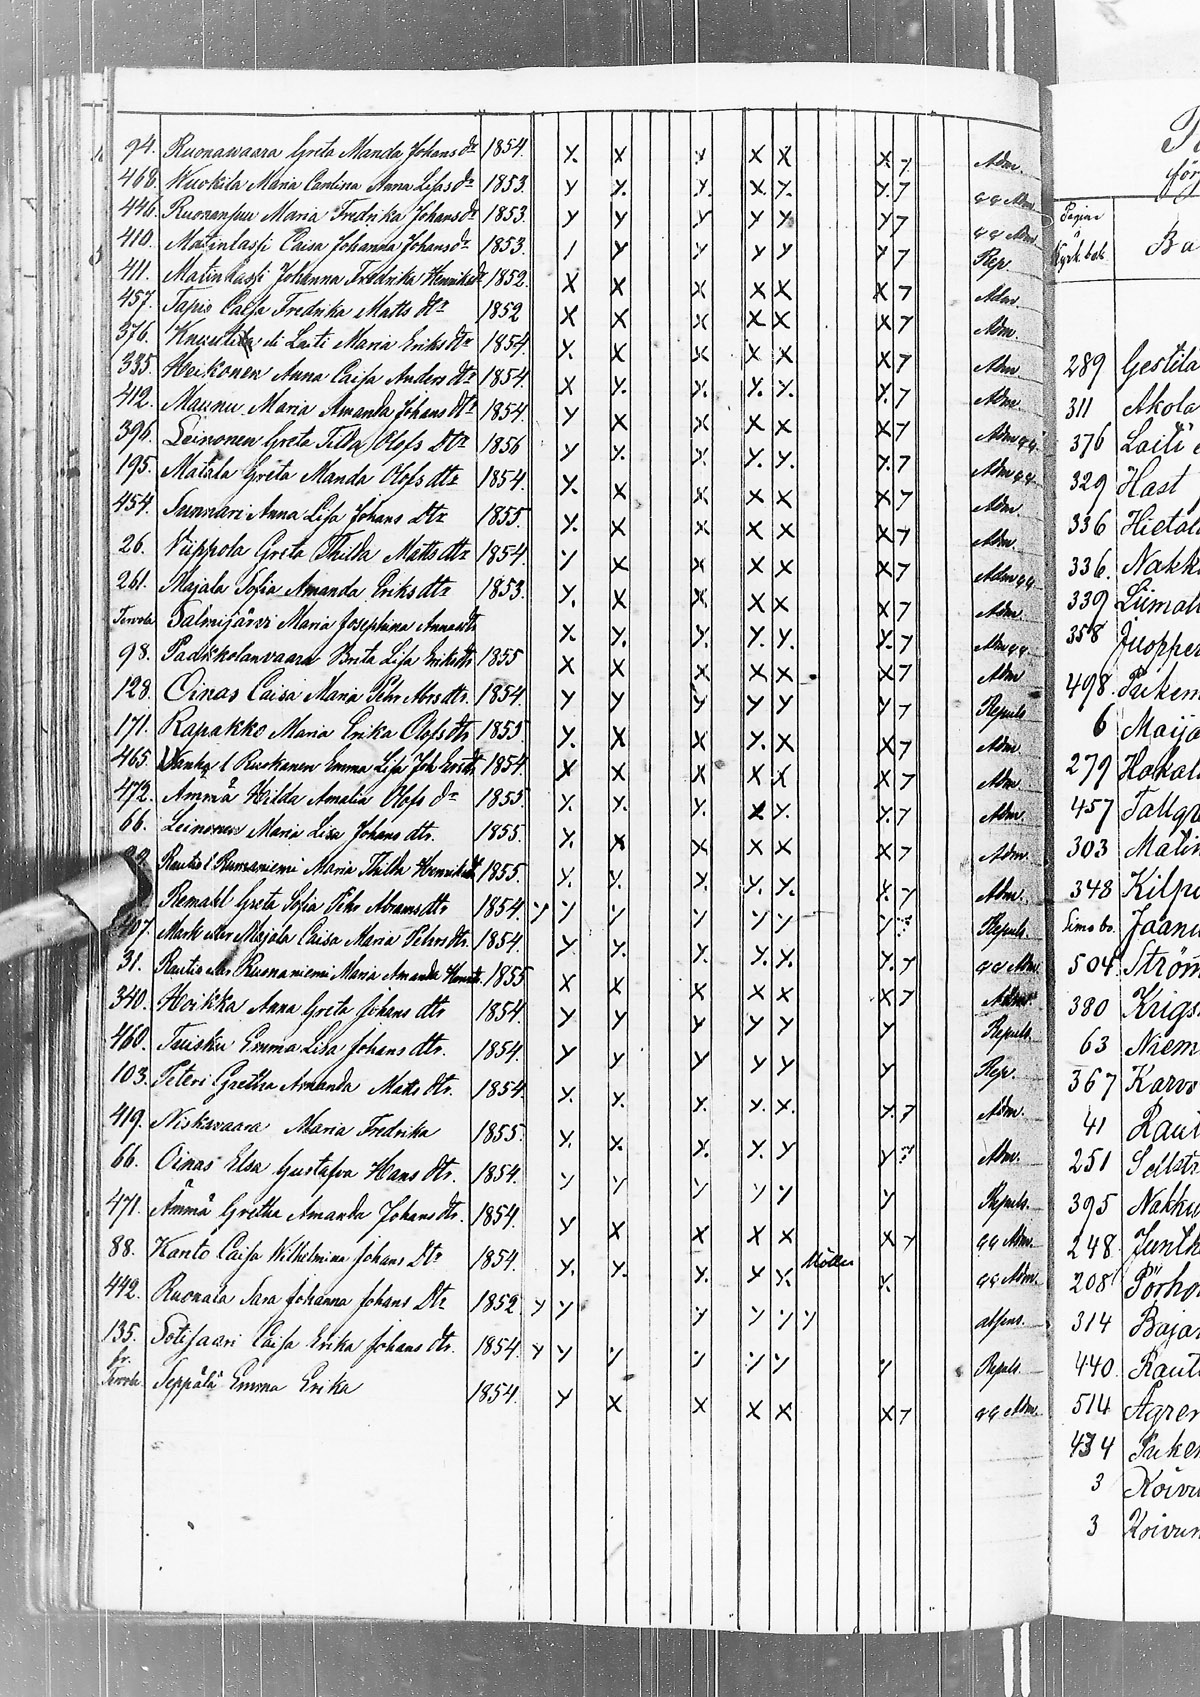 94. Ruonawaara Greta Manda Johans dr 1854. X X X X X X 7 Adm.
468. Wuokila Maria Carolina Anna Lisas dr 1853. Y Y Y X Y Y 7 qq Adm
446. Ruonansuu Maria Fredrika Johans dr 1853 Y Y Y Y Y Y 7 qq Adm
410. Matinlassi Caisa Johanna Johans dr 1853. 1 Y Y Y Y Y 7 Rep.
411. Matinlassi Johanna Fredrika Henriks dr 1852. X X X X X X 7 Adm.
457. Tapio Caisa Fredrika Matts dtr 1852 X X X X X X 7 Adm.
376. di Laiti Maria Eriks dtr 1854. Y X X X X X 7 Adm
335. Heikonen Anna Caisa Anders dtr 1854. X Y. Y. Y. Y. Y. 7 Adm.
412. Maunu Maria Amanda Johans dtr 1854. Y X X X X X 7 Adm qq.
396. Leinonen Greta Tilda Olofs Dtr 1856 Y Y. Y. Y. Y. Y. 7 Adm qq.
195. Matala Greta Manda Olofs dtr 1854. Y. X X X X X 7 Adm.
454. Sunnari Anna Lisa Johans Dtr 1855. Y. X X X X X 7 Adm.
26. Viippola Greta Thilda Matts dtr 1854. Y X X X X X 7 Adm qq.
261. Majala Sofia Amanda Eriks dtr 1853. Y. X X X X X 7 Adm.
Terwola Salmijärvi Maria Josephina Annas dtr Y. Y. Y. Y. Y. Y. 7 Adm qq.
98. Paakkolanvaara Brita Lisa Eriks dtr 1855 X X X X X X 7 Adm
128. Oinas Caisa Maria Pehr Abrs dtr. 1854. Y Y Y Y Y Y 7 Repuls
171. Rapakko Maria Erika Olofs dtr 1855. Y. X X Y. X X 7 Adm.
465. Wanha l Ruokanen Emma Lisa Joh Ers dtr. 1854. X X X X X X 7 Adm.
472. Ämmå Hilda Amalia Olofs dr 1855. Y. Y. Y. X Y. Y. 7 Adm.
66. Leinonen Maria Lisa Johans dtr. 1855. Y. X X X X X 7 Adm.
Rautio l Rumaniemi Maria Thilda Henriks dtr 1855. Y. Y. Y. Y. Y. Y. 7 Adm.
Remahl Greta Sofia Pehr Abrams dtr 1854. Y Y Y Y Y Y Y Repuls.
407. Mark eller Majala Caisa Maria Pehrs dtr. 1854. Y Y. Y. Y. Y. Y. 7 qq Adm
31. Rautio eller Ruonaniemi Maria Amanda Henriks 1855 X X X X X X 7 Adm.
340. Heikka Anna Greta Johans dtr 1854. Y Y Y Y Y Y Repuls.
460. Tuisku Emma Lisa Johans dtr. 1854. Y Y Y Y Y Y Rep.
103. Peteri Gretha Amanda Mats dtr. 1854. Y. Y. Y. Y. X. Y. 7 Adm.
419. Niskavaara Maria Fredrika 1855. Y. Y. Y. Y. Y Y 7 Adm.
66. Oinas Elsa Gustafva Hans dtr. 1854. Y Y Y Y Y Y Repuls.
471. Ämmå Gretha Amanda Johans dtr. 1854. Y X X X X X 7 qq Adm.
88. Kanto Caisa Wilhelmina Johans Dtr 1854. Y. Y. Y. Y Y. Möller Y. qq Adm.
442. Ruonala Sara Johanna Johans Dtr 1852 Y Y Y Y Y Y absens.
135. Sotisaari Caisa Erika Johans dtr. 1854. Y Y Y Y Y Y Y Repuls
fr. Terwola Seppälä Emma Erika 1854. Y X X X X X 7 qq Adm.
för
Pagina
å
Kyrk.bok
Ba
289 Gestila
311 Akola
376 Laiti
329 Hast
336 Hietala
336. Nakk
339 Liimat
358 Juopper
498. Pukem
6 Maija
279 Hakal
457 Tallgr
303 Matin
348 Kilp
Simo br. Jaanu
504. Ström
380 Krigs
63 Niem
367 Karvo
41 Raut
251 Sellstr
395 Nakku
248 Junth
208 Pörho
314 Bajar
440. Raut
514 Ågren
434 Puke
3 Koivu
3 Koivun